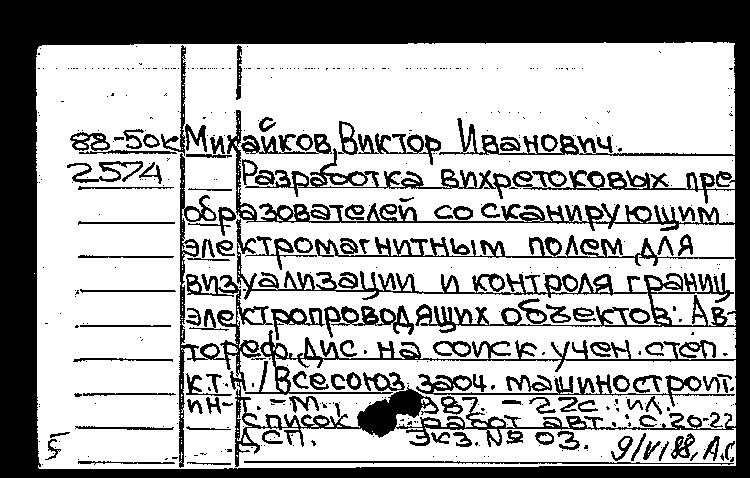 88-50к Михайков, Виктор Иванович.
2574 Разработка вихретоковых пре
образователей со сканирующим
электромагнитным полем для
визуализации и контроля границ
электропроводящих объектов: Ав-
тореф. дис. на соиск. учен. степ.
к.т.н. / Всесоюз. заоч. машиностроит.
ин-т. - М., 987. - 22с.: ил.
Список работ авт.: с. 20-22
5 ДСП. Экз. № 03. 9/VI 88, А.С.